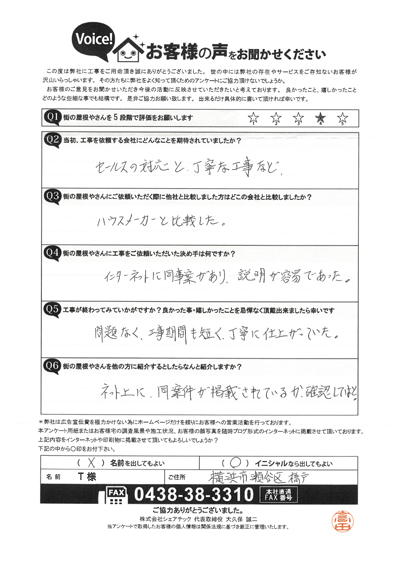 Voice!
お客様の声をお聞かせください
この度は弊社に工事をご用命頂き誠にありがとうございました。世の中には弊社の存在やサービスをご存知ないお客様が
沢山いらっしゃいます。その方たちに弊社をよく知って頂くためのアンケートにご協力頂けないでしょうか。
お客様のご意見をお聞かせいただき今後の活動に反映させていただきたいと考えております。良かったこと、嬉しかったこと
どのような些細な事でも結構です。是非ご協力お願い致します。出来るだけ具体的に書いて頂ければ幸いです。
Q1 街の屋根やさんを5段階で評価をお願いします ☆ ☆ ☆ ★ ☆
Q2 当初、工事を依頼する会社にどんなことを期待されていましたか?
セールスの対応と、丁寧な工事など、
Q3 街の屋根やさんにご依頼いただく際に他社と比較しました方はどこの会社と比較しましたか?
ハウスメーカーと比較した。
Q4 街の屋根やさんに工事をご依頼いただいた決め手は何ですか?
インターネットに同事案があり、説明が容易であった。
Q5 工事が終わってみていかがですか?良かった事・嬉しかったことを忌憚なく頂戴出来ましたら幸いです
問題なく、工事期間も短く、丁寧に仕上がっていた。
Q6 街の屋根やさんを他の方に紹介するとしたらなんと紹介しますか?
ネット上に、同案件が掲載されているか、確認しては
*弊社は広告宣伝費を極力かけない為にホームページだけを頼りにお客様への営業活動を行っております。
本アンケート用紙またはお客様宅の調査風景や施工状況、お客様の顔写真を随時ブログ形式のインターネットに掲載させて頂いております。
上記内容をインターネットや印刷物に掲載させて頂いてもよろしいでしょうか?
下記の中から○印をお付下さい。
( X ) 名前を出してもよい ( ○ ) イニシャルなら出してもよい
名前 T様 ご住所 横浜市瀬谷区橋戸
FAX 0438-38-3310 本社直通 FAX番号
ご協力ありがとうございました。
株式会社シェアテック 代表取締役 大久保 誠二
*当アンケートで取得したお客様の個人情報は関係法規に基づき厳正に管理いたします。